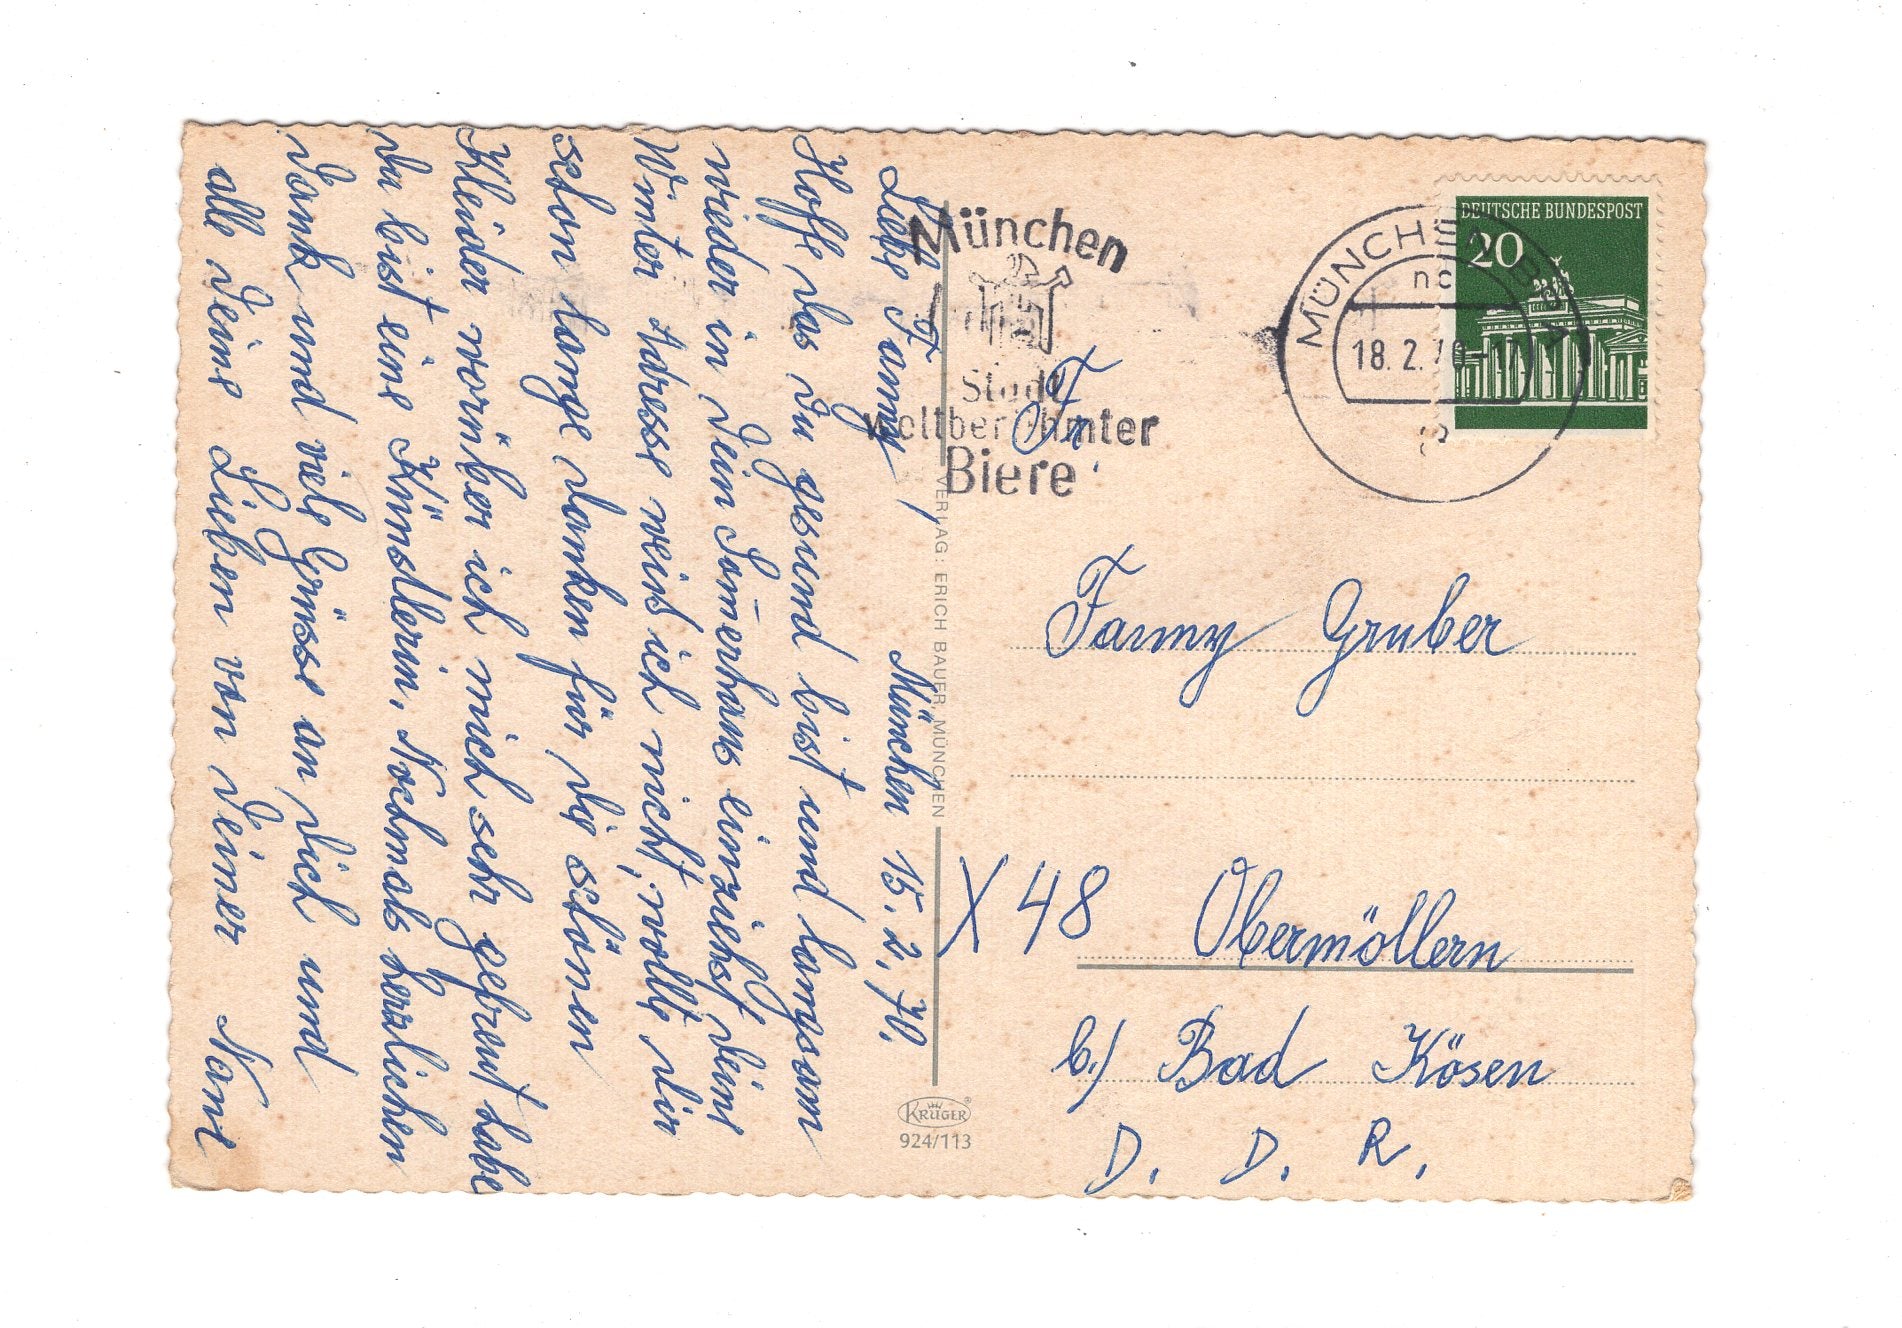 Liebe Fanny! München 15.2.70.
Hoffe das du gesund bist und langsam
wieder in dein Som̄erhaus einziehst, deine
Winter Adresse weis ich nicht, wollte dir
schon lange danken für die schönen
Kleider worüber ich mich sehr gefreut habe
du bist eine Künstlerin. Nochmals herzlichen
Dank und viele Grüsse an dich und
alle deine Lieben von deiner Nane
München
Stadt
weltberühmter
Biere
VERLAG: ERICH BAUER, MÜNCHEN
KRÜGER®
924/113
DEUTSCHE BUNDESPOST
20
MÜNCHEN BPA
nc
18.2.70-17
Fr.
Fanny Gruber
X 48 Obermöllern
b./ Bad Kösen
D. D. R.